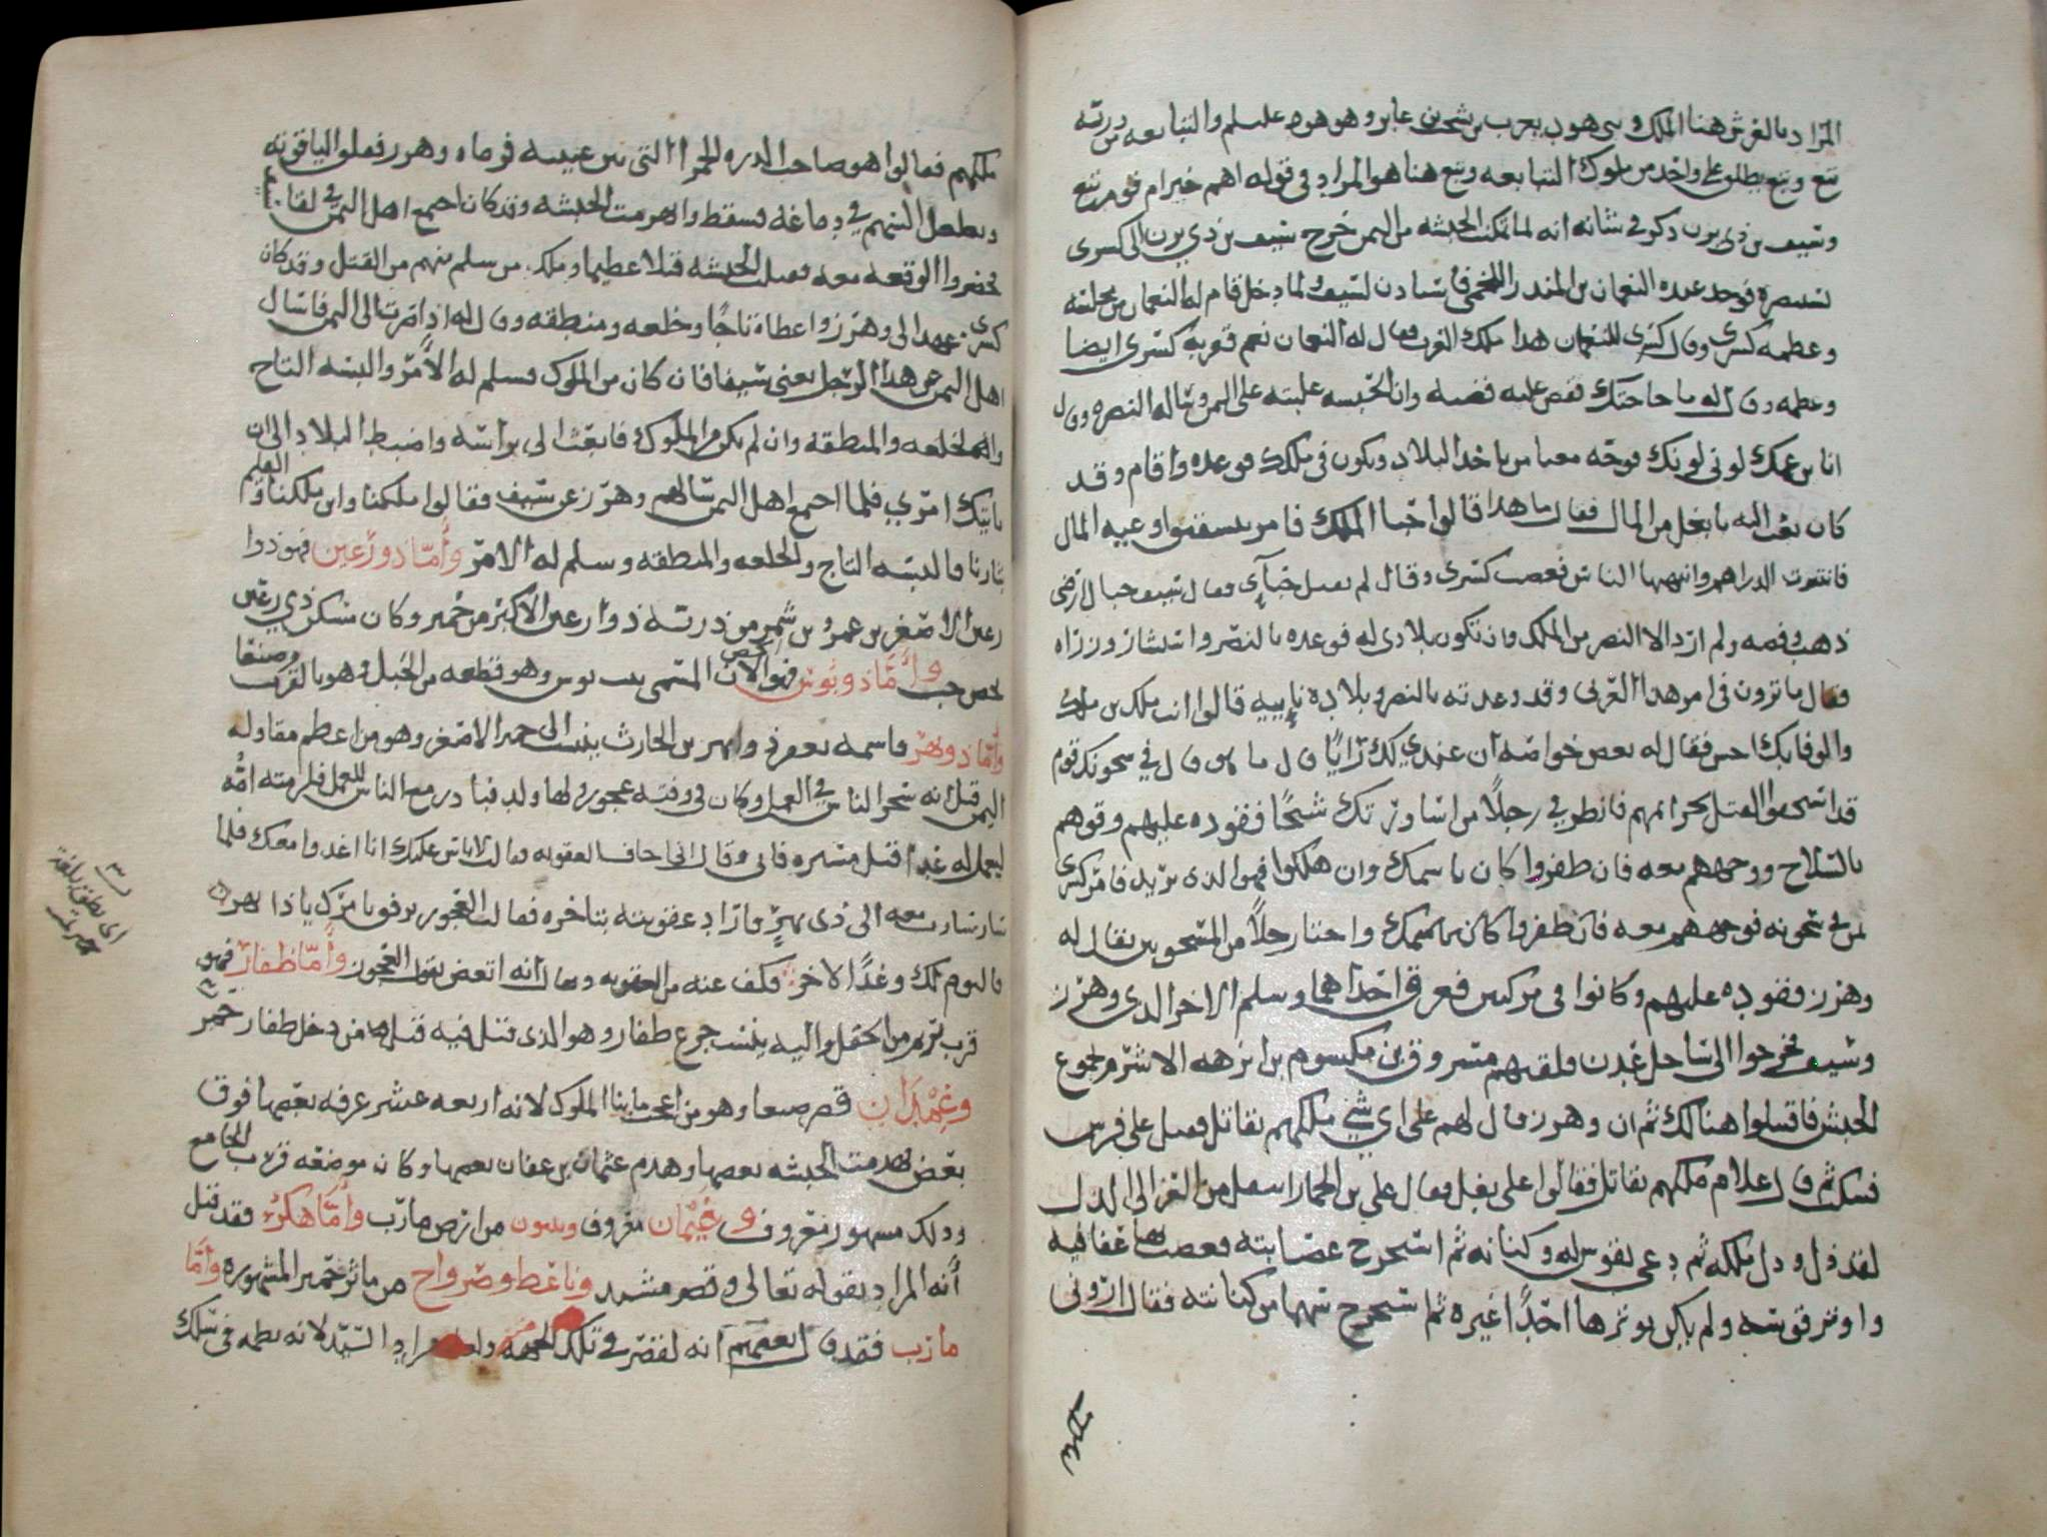 المراد بالعرش هنا الملك وبنى هود يعرب بن شجب بن عابر وهو هود عليلم والتبابعه من ذريته
تبع وتبع يطلق على واحد من ملوك التبابعه وتبع هنا هو المراد في قوله اهم خير ام قوم تبع
وسيف بن ذي يزن ذكر في شانه انه لما تمكنت الحبشه من اليمن خرج سيف بن ذي يزن الى كسرى
نستنصره فوجد عنده النعمان بن المنذر اللخمي فاستاذن لسيف ولما دخل قام له النعمان من مجلسه
وعظمه كسرى وقال كسرى للنعمان هذا ملك العرب فقال له النعمان نعم فقربه كسرى ايضا
وعظمه وقال له ما حاجتك فقص عليه قصته وان الحبشه غلبته على اليمن وساله النصره وقال
انا بن عمك لوني لونك فوجه معنا من ياخذ البلاد ويكون في ملكك فوعده واقام وقد
كان بعث اليه بابغل من المال فقال ما هذا قالوا حبا الملك فامر بمسفنوا عيبه المال
فانتثرت الدراهم وانتهبها الناس فغضب كسرى وقال لم يقبل حباءي فقال سيف جبال ارضي
ذهب وفضه ولم ارد الا النصر من الملك وان تكون بلادي له فوعده بالنصر واستشار وزراه
فقال ما ترون في امر هذا العربي وقد وعدته بالنصر وبلاده نايه قالوا انت ملك بن ملك
والوفا بك احسن فقال له بعض خواصه ان عندي لك رايا قال ما هو قال في سجونك قوم
قد استحقوا القتل بجرائمهم فانظر في رجلا من اساورتك شيخا فقوده عليهم وقوهم
بالسلاح ووجههم معه فان ظفروا كان باسمك وان هلكوا فهو الذي تريد فامر كسرى
لمن في سجونه فوجههم معه فان ظفروا كان باسمك واختار رجلا من المسجونين يقال له
وهرز فقوده عليهم وكانوا في مركبين فغرق احداهما وسلم الاخر الذي وهرز
وسيف فخرجوا الى ساحل عدن فلقيهم مسروق بن مكيسوم بن ابرهه الاشرم لجموع
الحبش فاقتتلوا هنالك ثم ان وهرز قال لهم على اي شي ملكهم يقاتل فقيل على فرس
فسكت ثم قال علام ملكهم يقاتل فقالوا على بغل فقال على بن الحمار انتقل من العز الى الذل
لقد ذل وذل ملكه ثم دعى بقوس له وكنانه ثم استخرج عصابته فعصب بها عفافيه
واوتر قوسه ولم يكن يوترها احدا غيره ثم استخرج سهما من كنانته فقال اروني
ملكهم فقالوا هو صاحب الدره الحمرا التي بين عينيه فرماه وهرز ففلق الياقوته
وتغلغل السهم في دماغه فسقط وانهزمت الحبشه وقد كان اجمع اهل اليمن في لقا
فحضروا الوقعه معه فقتلت الحبشه قتلا عظيما وملك من سلم منهم من القتل وقد كان
كسرى عهد الى وهرز واعطاه تاجا وخلعه ومنطقه وقال له اذا صرت الى اليمن فاسال
اهل اليمن عن هذا الرجل يعني سيفا فان كان من الملوك فسلم له الامر والبسه التاج
والخلعه والمنطقه وان لم يكن من الملوك فابعث الى براسه واضبط البلاد الى ان
ياتيك امري فلما اجمع اهل اليمن سالهم وهرز عن سيف فقالوا ملكنا وابن ملكنا والقايم
بثارنا فالبسه التاج والخلعه والمنطقه وسلم له الامر وأما ذورعين فهو ذوا
رعين الاصغر بن عمرو بن شمر من ذريته ذوا رعين الاكبر من حمير وكان مسكن ذي رعين
لحص حب وأما ذو نوس فهو الان الحصن المسمى بيت بوس وهو قطعه من الجبل وهو بالقرب من صنعا
وأما ذو بهر فاسمه يعفر ذو بهر بن الحارث ينسب الى حمير الاصغر وهو من اعظم مقاوله
اليمن قيل انه سخر الناس في العمل وكان في وقته عجوز ولها ولد فبادر مع الناس للعمل فلزمته امه
ليعمل له غدا قبل مسيره فابى وقال انى اخاف العقوبه فقالت لا باس عليك انا اغدوا معك فلما
سار سارت معه الى ذي بهر فاراد عقوبته بتاخره فقالت العجوز ترفق بامرك يا ذا بهر
فاليوم لك وغدا لاخر فكف عنه من العقوبه وقال انه اتعض بقول العجوز وأما ظفار فهو
قرب يريم من الحقل واليه ينسب جزع ظفار وهو الذي قتل فيه قتلا من دخل ظفار حمر
وغمدان قصر صنعا وهو من اعجب ما بنا الملوك لانه اربعه عشر غرفه بعضها فوق
بعض هدمت الحبشه بعضها وهدم عثمان بن عفان بعضها وكان موضعه قرب الجامع
وذلك مشهور معروف وغيمان معروف وبينون من ارض مارب وأما هكر فقد قيل
أنه المراد بقوله تعالى وقصر مشيد وناعط وصرواح من ماثر حمير المشهوره وأما
مارب فقد قال بعضهم انه لقصر في تلك الجهه ولعله مراد السيد لانه نظمه في سلك
اي نطق بلغة
حمير